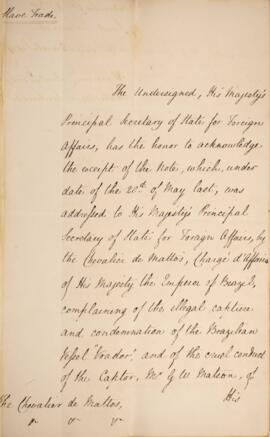 Slave Trade.
The Undersigned, His Majesty's
Principal Secretary of State for Foreign
Affairs, has the honor to acknowledge
the receipt of the Note, which, under
date of the 20th of May last, was
addressed to His Majesty's Principal
Secretary of State for Foreign Affairs, by
the Chevalier de Mattos, Chargé d'Affaires
of His Majesty the Emperor of Brazil,
complaining of the illegal capture
and condemnation of the Brazilian
Vessel "Voador" and of the cruel conduct
of the Captor, Mr G W Matson, of
His
The Chevalier de Mattos,